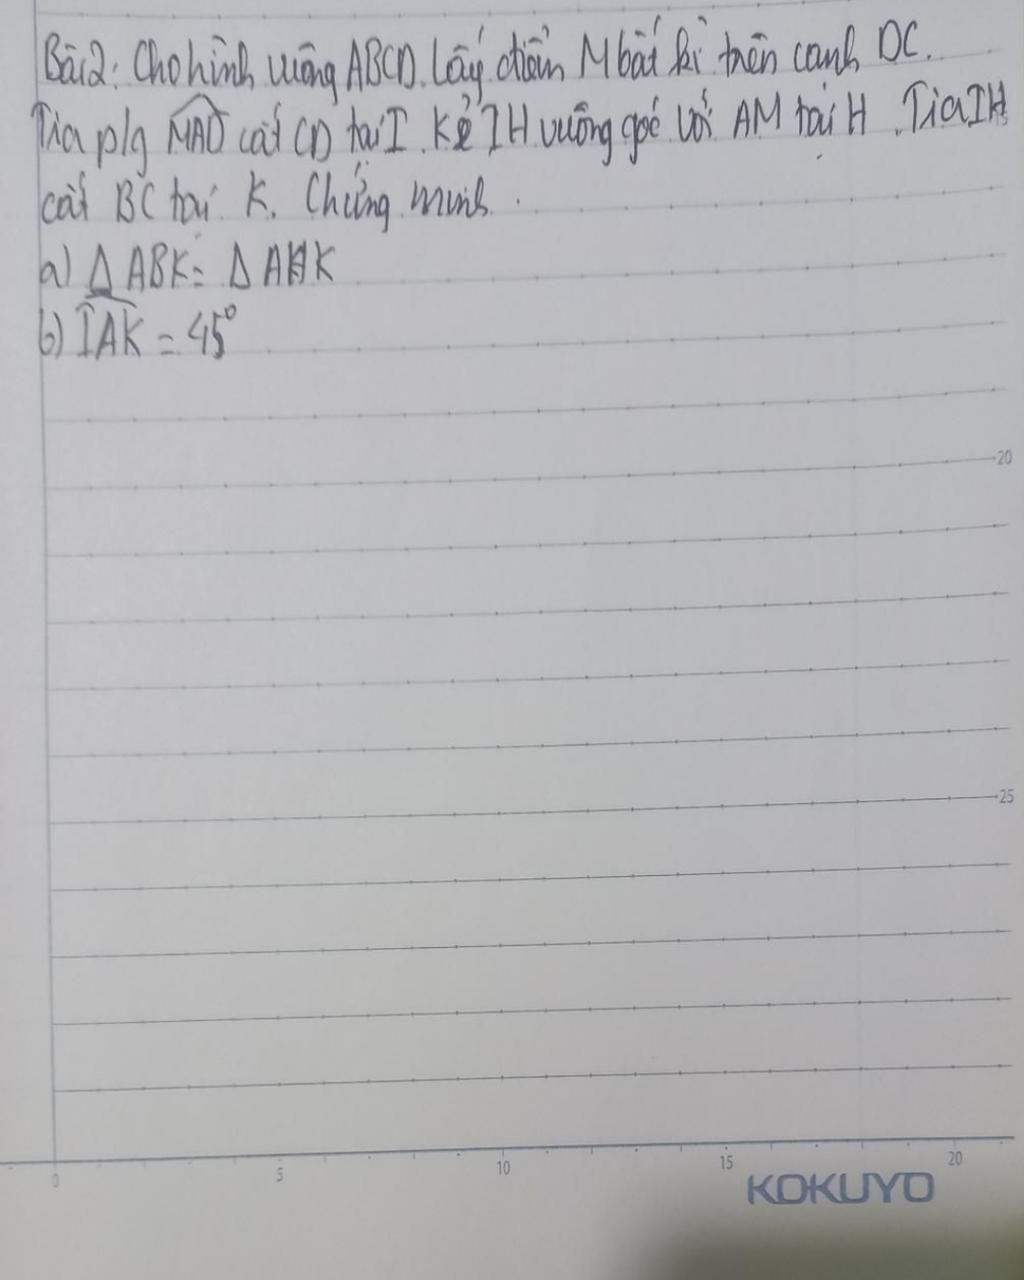 Bài 2: Cho hình vuông ABCD. Lấy điểm M bất kì trên cạnh DC.
Tia p/g MAD cắt CD tại I. Kẻ IH vuông góc với AM tại H. Tia IH
cắt BC tại K. Chứng minh.
a) Δ ABK = Δ AHK
b) IAK = 45°
20
25
0 5 10 15 20
KOKUYO